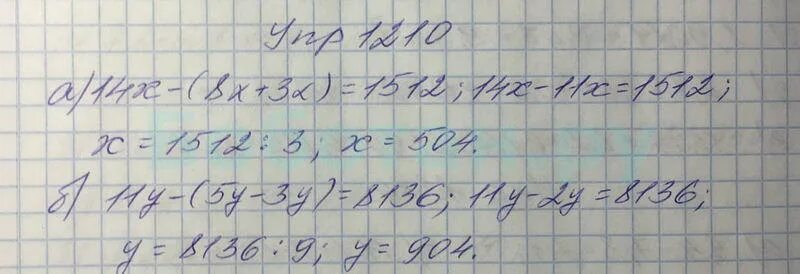 Упр 1210
а) 14х-(8х+3х)=1512; 14х-11х=1512;
х=1512:3; х=504.
б) 11у-(5у-3у)=8136; 11у-2у=8136;
у=8136:9; у=904.